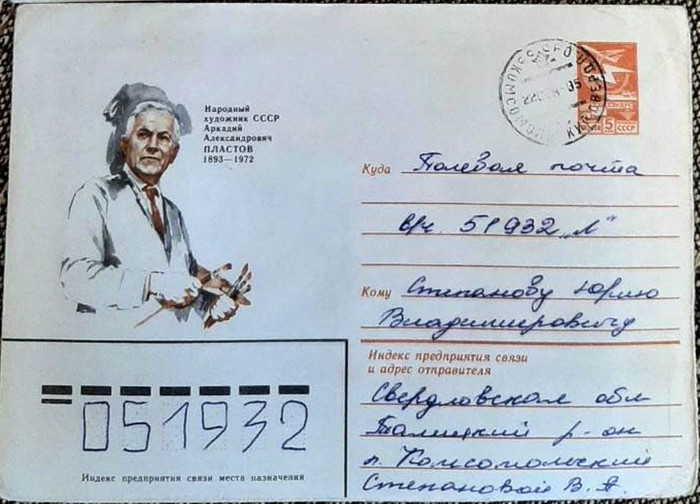 Народный
художник СССР
Аркадий
Александрович
ПЛАСТОВ
1893—1972
5 СССР
Куда Полевая почта
в/ч 51932 „Л"
Кому Степанову Юрию
Владимировичу
Индекс предприятия связи
и адрес отправителя
Свердловская обл
Талицкий р-он
п. Комсомольский
Степановой В. А
051932
Индекс предприятия связи места назначения